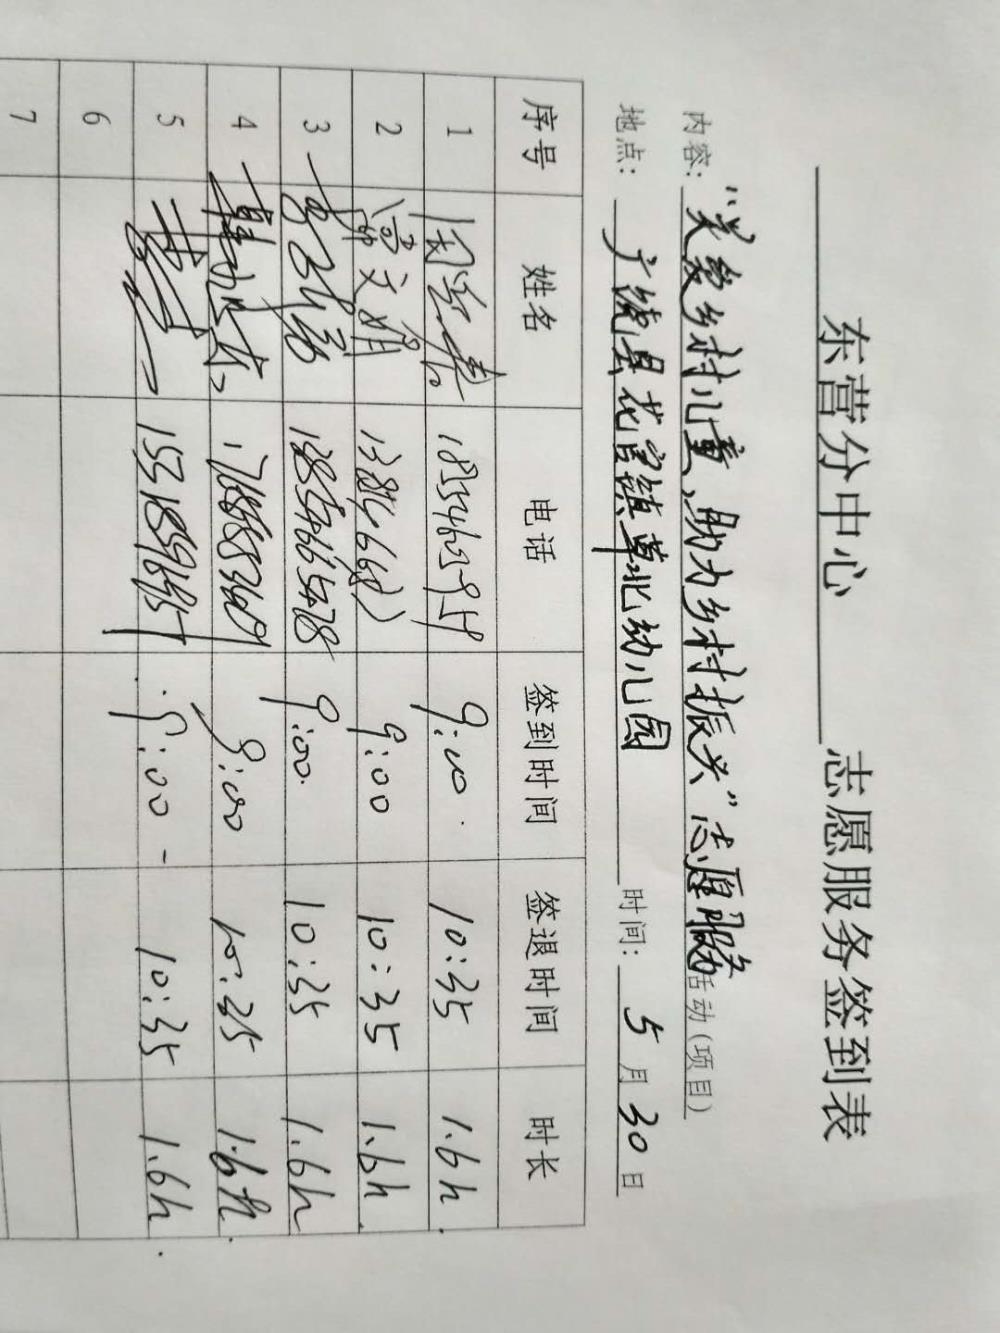 东营分中心 志愿服务签到表
内容:“关爱乡村儿童、助力乡村振兴”志愿服务活动(项目)
地点: 广饶县花官镇草北幼儿园 时间: 5月30日
序号 姓名 电话 签到时间 签退时间 时长
1 9:00 10:35 1.6h
2 9:00 10:35 1.6h
3 18854665478 9:00 10:35 1.6h
4 9:00 10:35 1.6h
5 9:00 10:35 1.6h
6
7